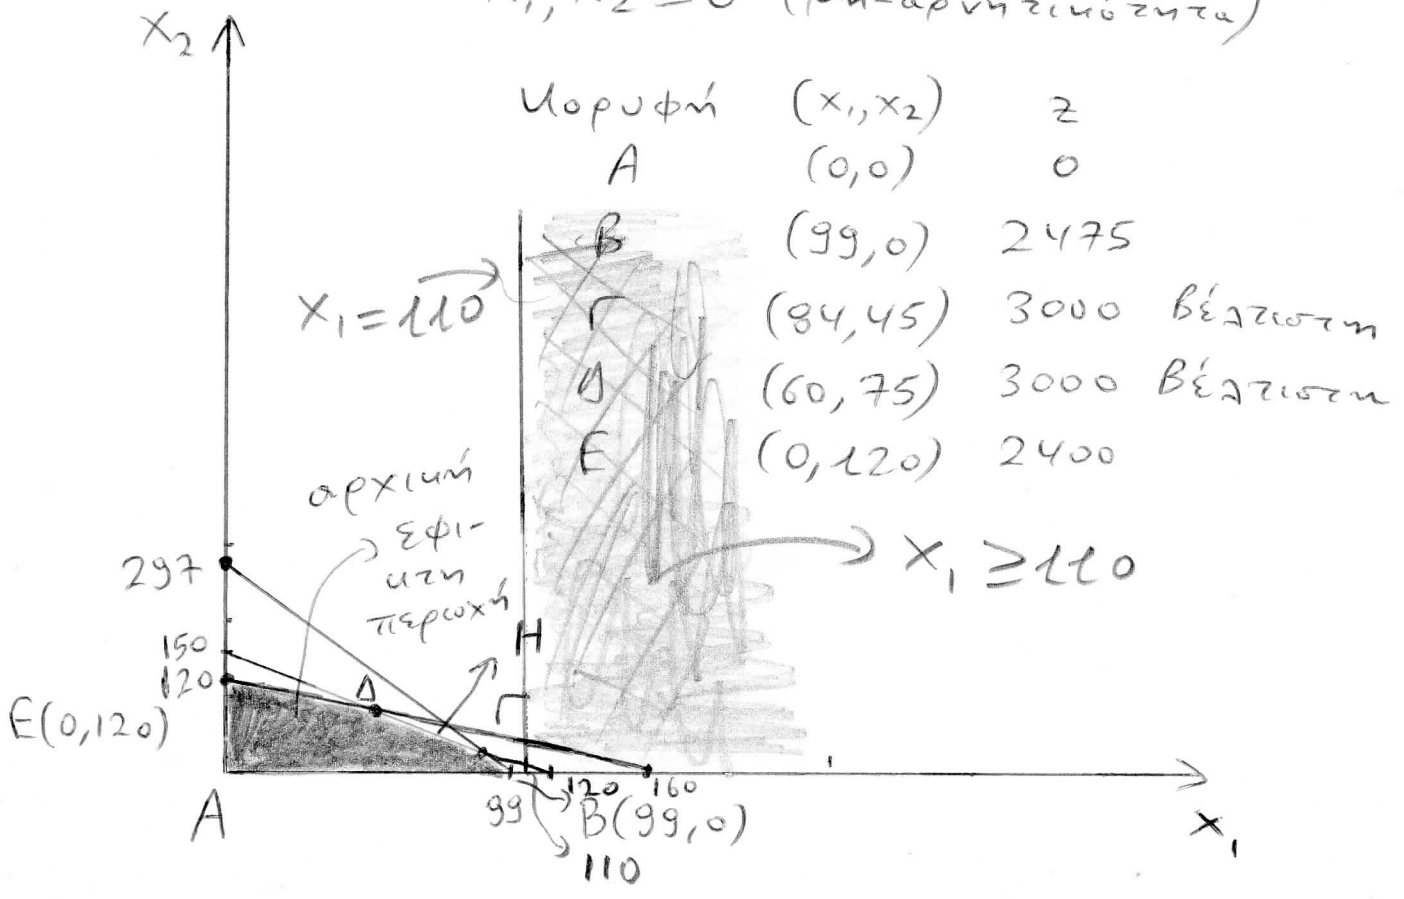 x₁, x₂ ≥ 0 (μη-αρνητικότητα)
x₂
κορυφή (x₁,x₂) z
A (0,0) 0
B (99,0) 2475
Γ (84,45) 3000 βέλτιστη
Δ (60,75) 3000 βέλτιστη
E (0,120) 2400
x₁=110
αρχική
εφι-
κτη
περιοχή
x₁ ≥110
297
H
150
120
Δ
Γ
E(0,120)
A
99
120
160
B(99,0)
110
x₁